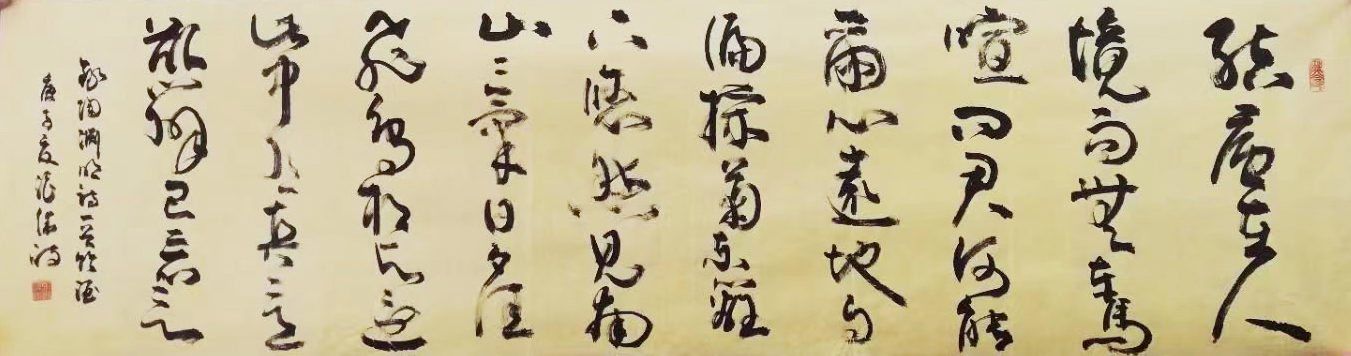 結廬在人
境而無車馬
喧問君何能
爾心遠地自
偏採菊東籬
下悠然見南
山々氣日夕佳
飛鳥相与還
此中有真意
欲辯已忘言
錄陶淵明詩一首飲酒
庚子夏